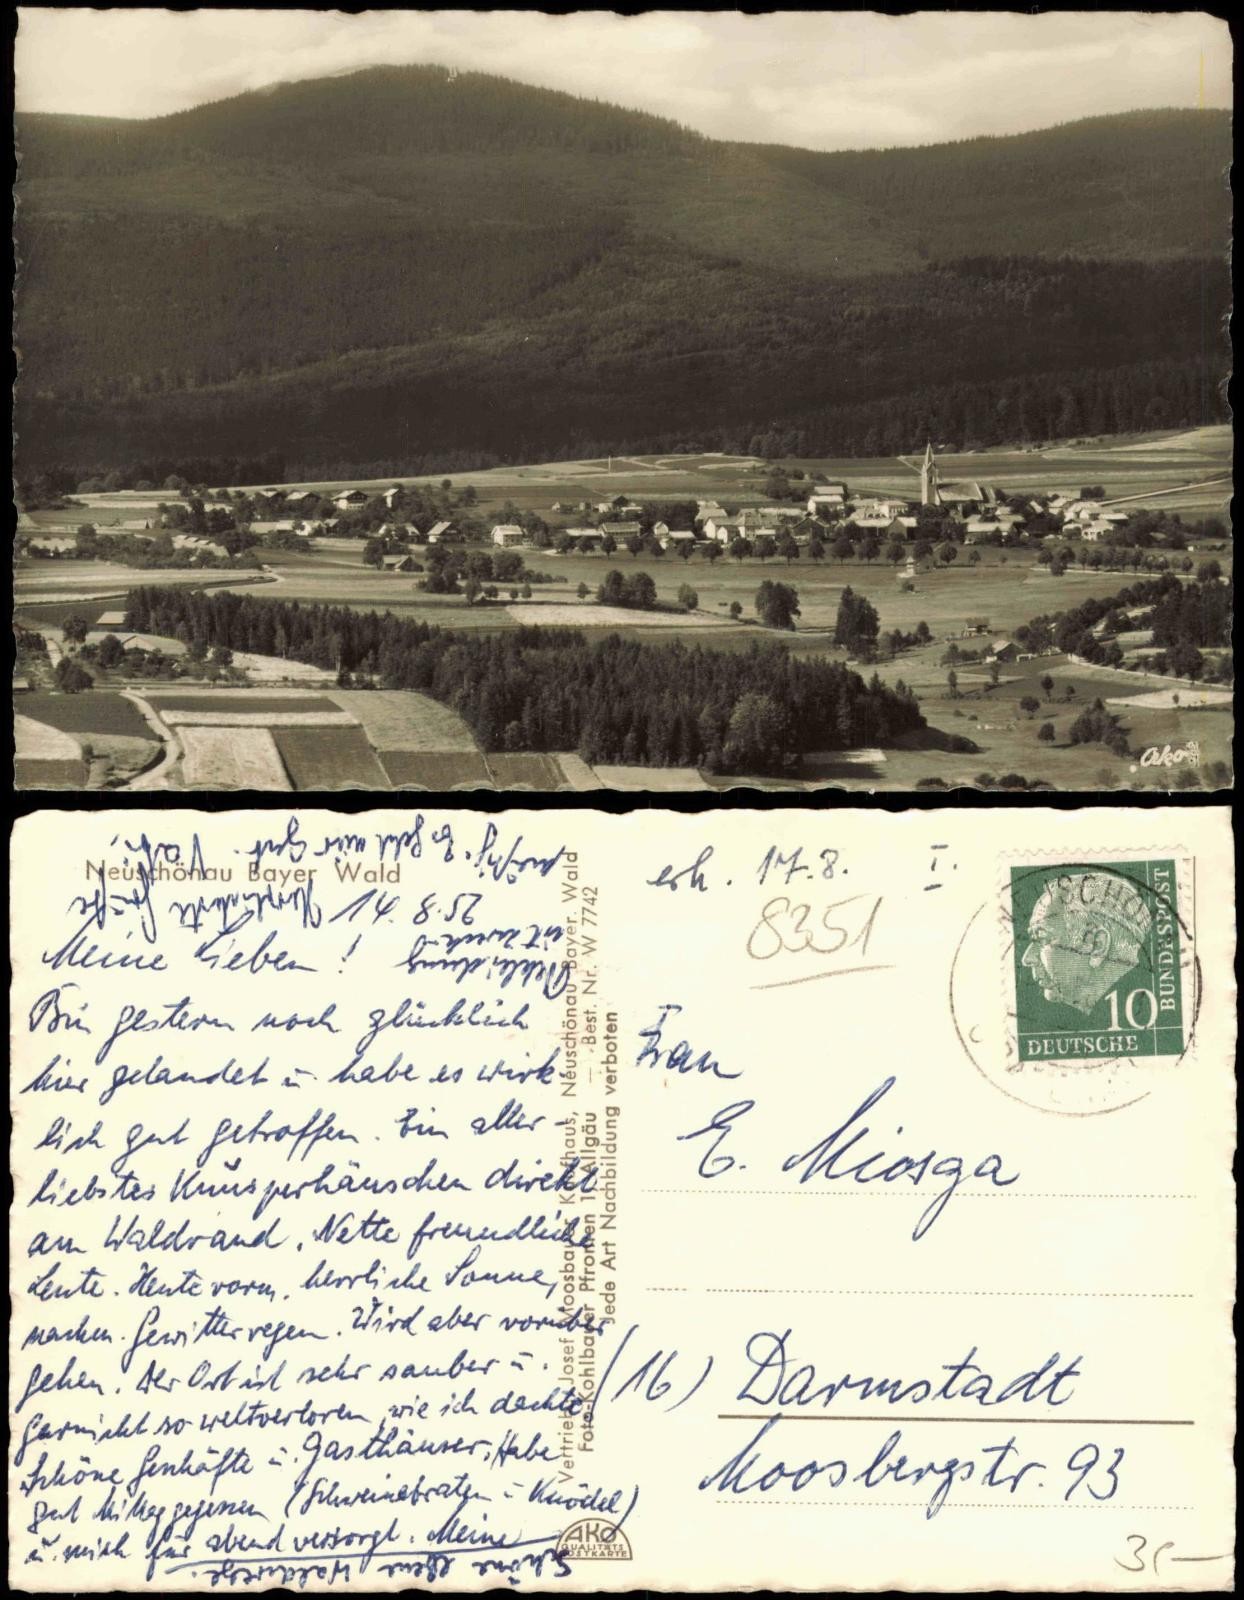 Ako
Neuschönau Bayer Wald
14.8.57
Meine Lieben!
Bin gestern noch glücklich
hier gelandet u. habe es wirk-
lich gut getroffen. Ein aller-
liebstes Knusperhäuschen direkt
am Waldrand. Nette freundliche
Leute. Heute vorm. herrliche Sonne,
nachm. Gewitterregen. Wird aber vorüber
gehen. Der Ort ist sehr sauber u.
garnicht so weltverloren, wie ich dachte.
Schöne Geschäfte u. Gasthäuser. Habe
gut Mittag gegessen (Schweinebraten u. Knödel)
u. mich für abend versorgt. Meine
Bekleidung ist
Es geht mir gut.
Schöne ebene Waldwege.
Herzlichste Grüße
Vati
Vertrieb: Josef Moosbauer, Kaufhaus, Neuschönau Bayer. Wald
Foto-Kohlbauer Pfronten 1 Allgäu — Best. Nr. W 7742
Jede Art Nachbildung verboten
AKO
QUALITÄTS
POSTKARTE
erh. 17.8. I.
8351
DEUTSCHE
BUNDESPOST
10
Frau
E. Miosga
(16) Darmstadt
Moosbergstr. 93
3,—